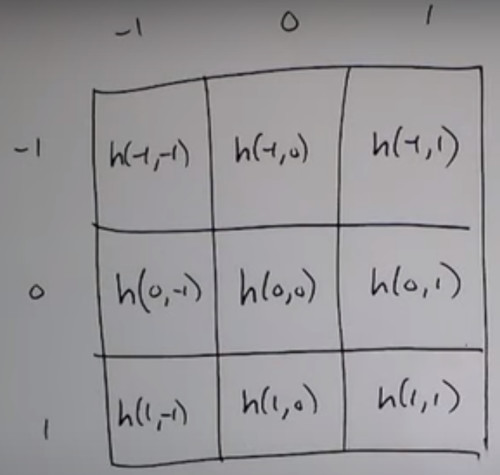 -1 0 1
-1 h(-1,-1) h(-1,0) h(-1,1)
0 h(0,-1) h(0,0) h(0,1)
1 h(1,-1) h(1,0) h(1,1)